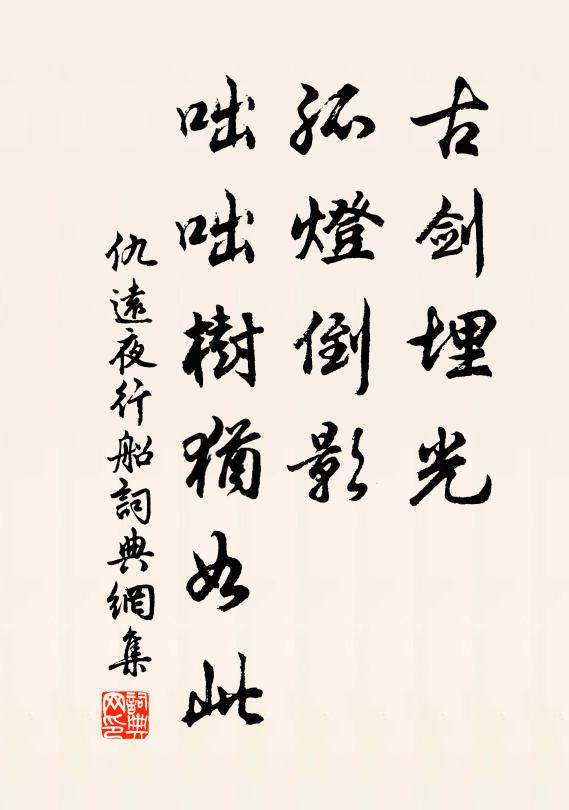 古剑埋光
孤燈倒影
咄咄樹猶如此
仇遠夜行船詞典網集
詞典網印